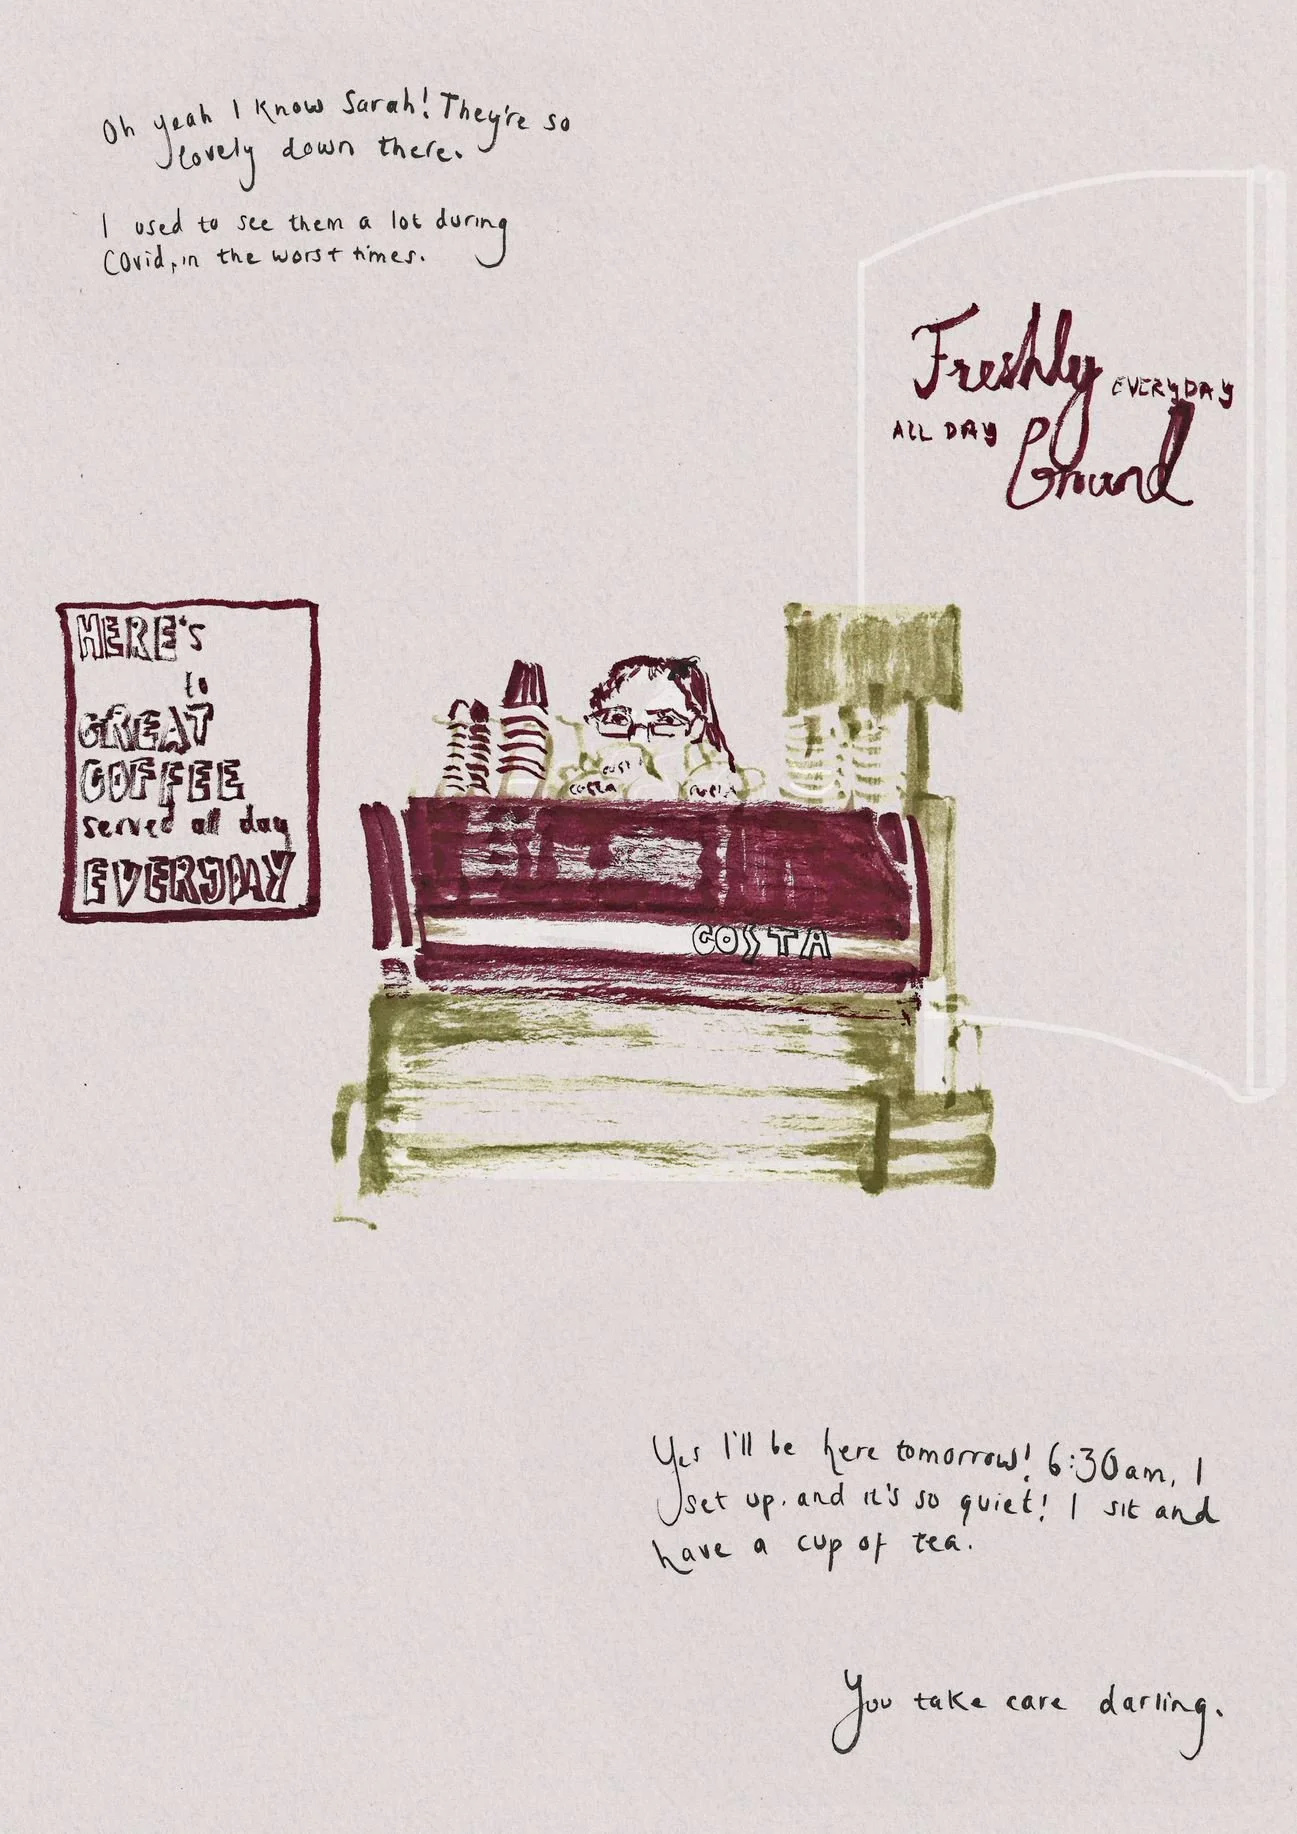 Oh yeah I know Sarah! They're so
lovely down there.
I used to see them a lot during
Covid, in the worst times.
Freshly EVERYDAY
ALL DAY Ground
HERE'S
to
GREAT
COFFEE
served all day
EVERYDAY
costa
costa
COSTA
Yes I'll be here tomorrow! 6:30am, I
set up, and it's so quiet! I sit and
have a cup of tea.
You take care darling.